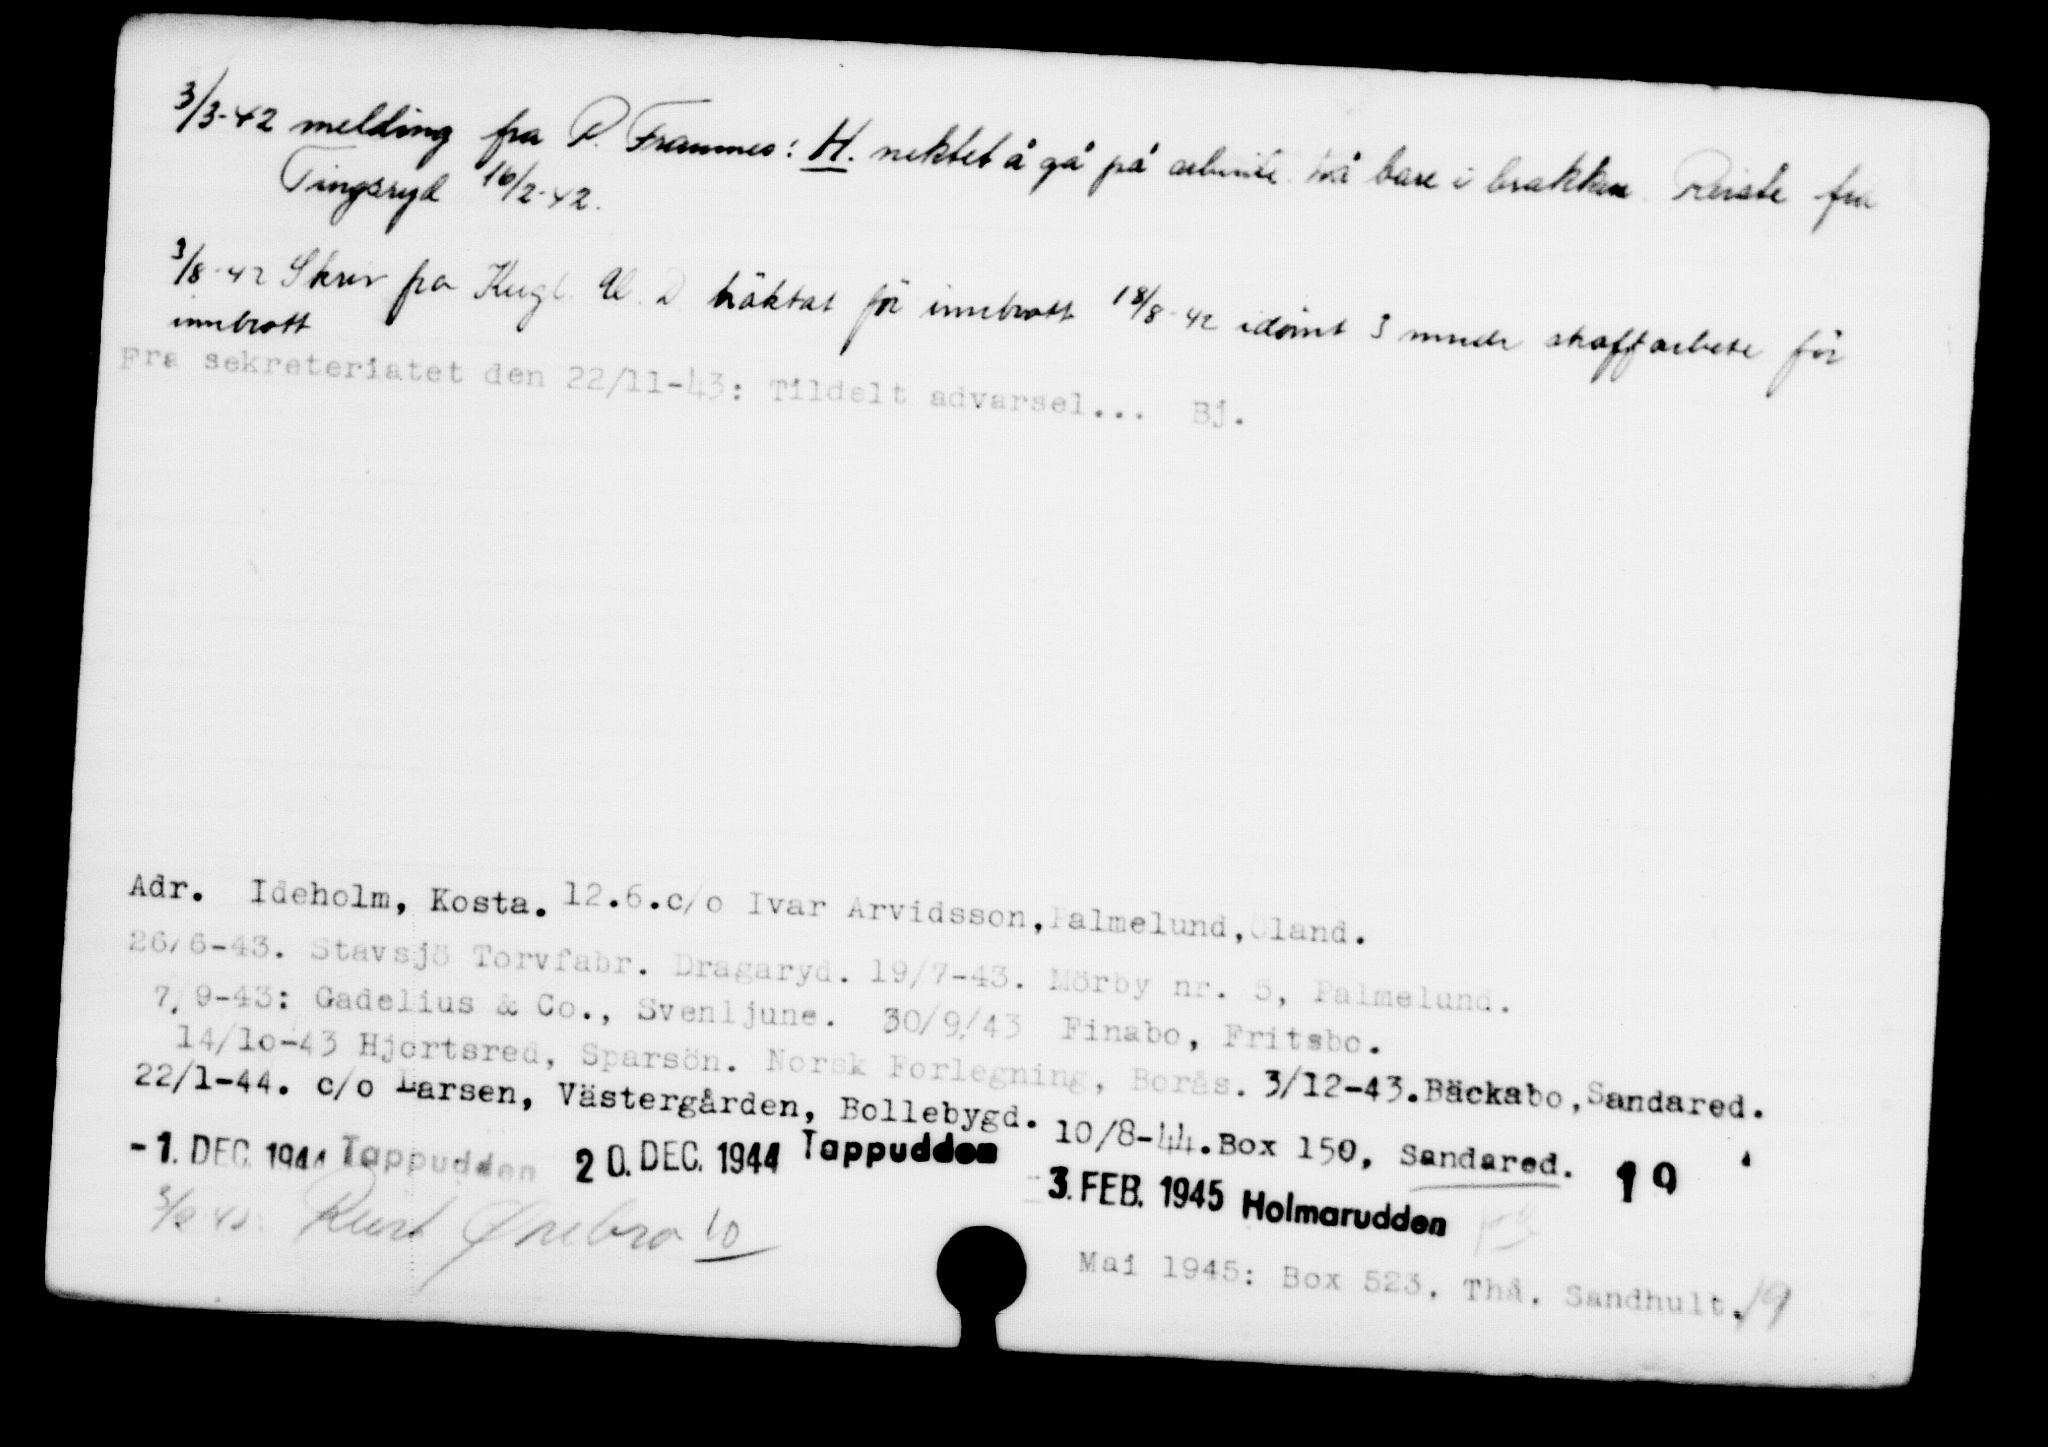 3/3-42 melding fra P. Framnes: H. nektet å gå på arbeide lå bare i brakken. Reiste fra
Tingsryd 16/2-42.
3/8-42 Skriv fra Kugl. U. D. häktat för innbrott 18/8-42 idømt 3 mndr straffarbete för
innbrott
Fra sekreteriatet den 22/11-43: Tildelt advarsel... Bj.
Adr. Ideholm, Kosta. 12.6.c/o Ivar Arvidsson,Palmelund,Öland.
26/6-43. Stavsjö Torvfabr. Dragaryd. 19/7-43. Mörby nr. 5, Palmelund.
7/9-43: Gadelius & Co., Svenljune. 30/9/43 Finabo, Fritsbo.
14/10-43 Hjortsred, Sparsön. Norsk Forlegning, Borås. 3/12-43.Bäckabo,Sandared.
22/1-44. c/o Larsen, Västergården, Bollebygd. 10/8-44.Box 150, Sandared. 19
-1. DEC. 1944 Tappudden 20. DEC. 1944 Tappudden -3. FEB. 1945 Holmarudden
Ørebro 10
Mai 1945: Box 523, Thå. Sandhult. 19